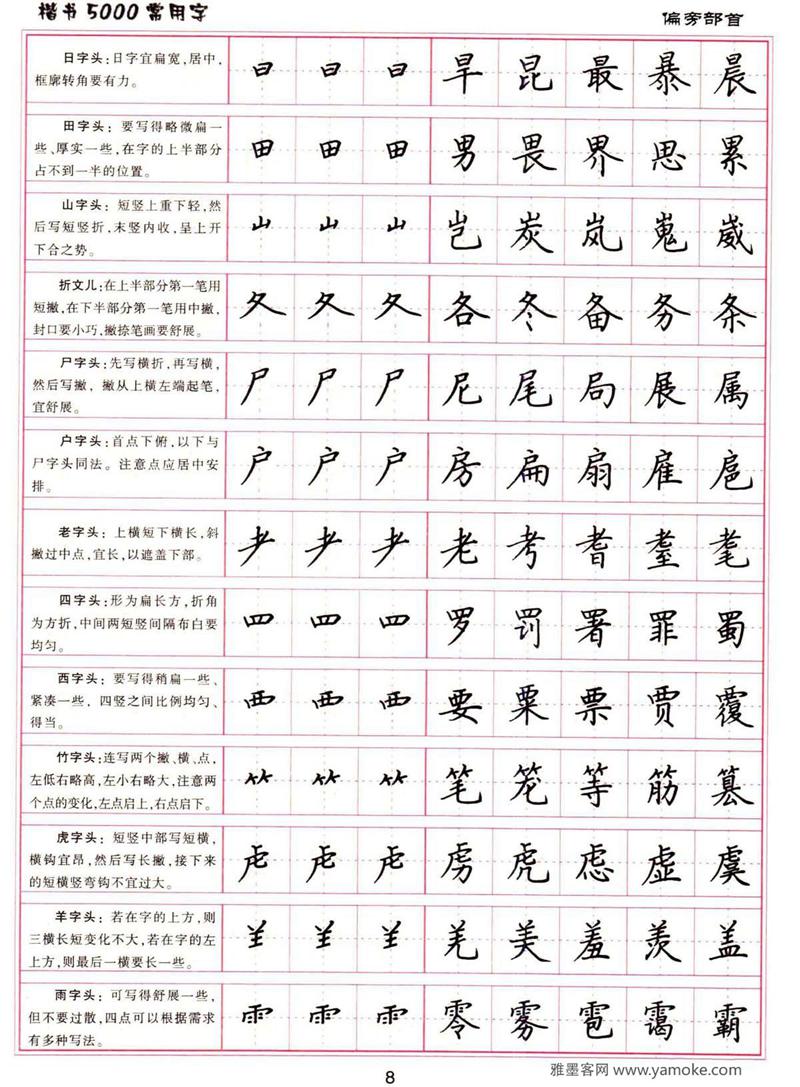 楷书5000常用字
偏旁部首
日字头:日字宜扁宽,居中,
框廓转角要有力。
日 日 日 旱 昆 最 暴 晨
田字头:要写得略微扁一
些、厚实一些,在字的上半部分
占不到一半的位置。
田 田 田 男 畏 界 思 累
山字头:短竖上重下轻,然
后写短竖折,末竖内收,呈上开
下合之势。
山 山 山 岂 炭 岚 嵬 崴
折文儿:在上半部分第一笔用
短撇,在下半部分第一笔用中撇,
封口要小巧,撇捺笔画要舒展。
夂 夂 夂 各 冬 备 务 条
尸字头:先写横折,再写横,
然后写撇,撇从上横左端起笔,
宜舒展。
尸 尸 尸 尼 尾 局 展 属
户字头:首点下俯,以下与
尸字头同法。注意点应居中安
排。
户 户 户 房 扁 扇 雇 扈
老字头:上横短下横长,斜
撇过中点,宜长,以遮盖下部。
耂 耂 耂 老 考 耆 耋 耄
四字头:形为扁长方,折角
为方折,中间两短竖间隔布白要
均匀。
罒 罒 罒 罗 罚 署 罪 蜀
西字头:要写得稍扁一些、
紧凑一些,四竖之间比例均匀、
得当。
覀 覀 覀 要 粟 票 贾 覆
竹字头:连写两个撇、横、点,
左低右略高,左小右略大,注意两
个点的变化,左点启上,右点启下。
⺮ ⺮ ⺮ 笔 笼 等 筋 篡
虎字头:短竖中部写短横,
横钩宜昂,然后写长撇,接下来
的短横竖弯钩不宜过大。
虍 虍 虍 虏 虎 虑 虚 虞
羊字头:若在字的上方,则
三横长短变化不大,若在字的左
上方,则最后一横要长一些。
⺷ ⺷ ⺷ 羌 美 羞 羡 盖
雨字头:可写得舒展一些,
但不要过散,四点可以根据需求
有多种写法。
⻗ ⻗ ⻗ 零 雾 雹 霭 霸
8
雅墨客网 www.yamoke.com